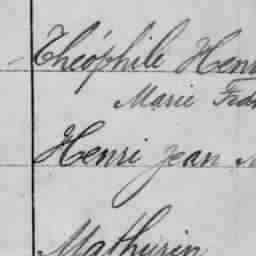 Théophile Henri
Marie Fran
Henri Jean M
Mathurin